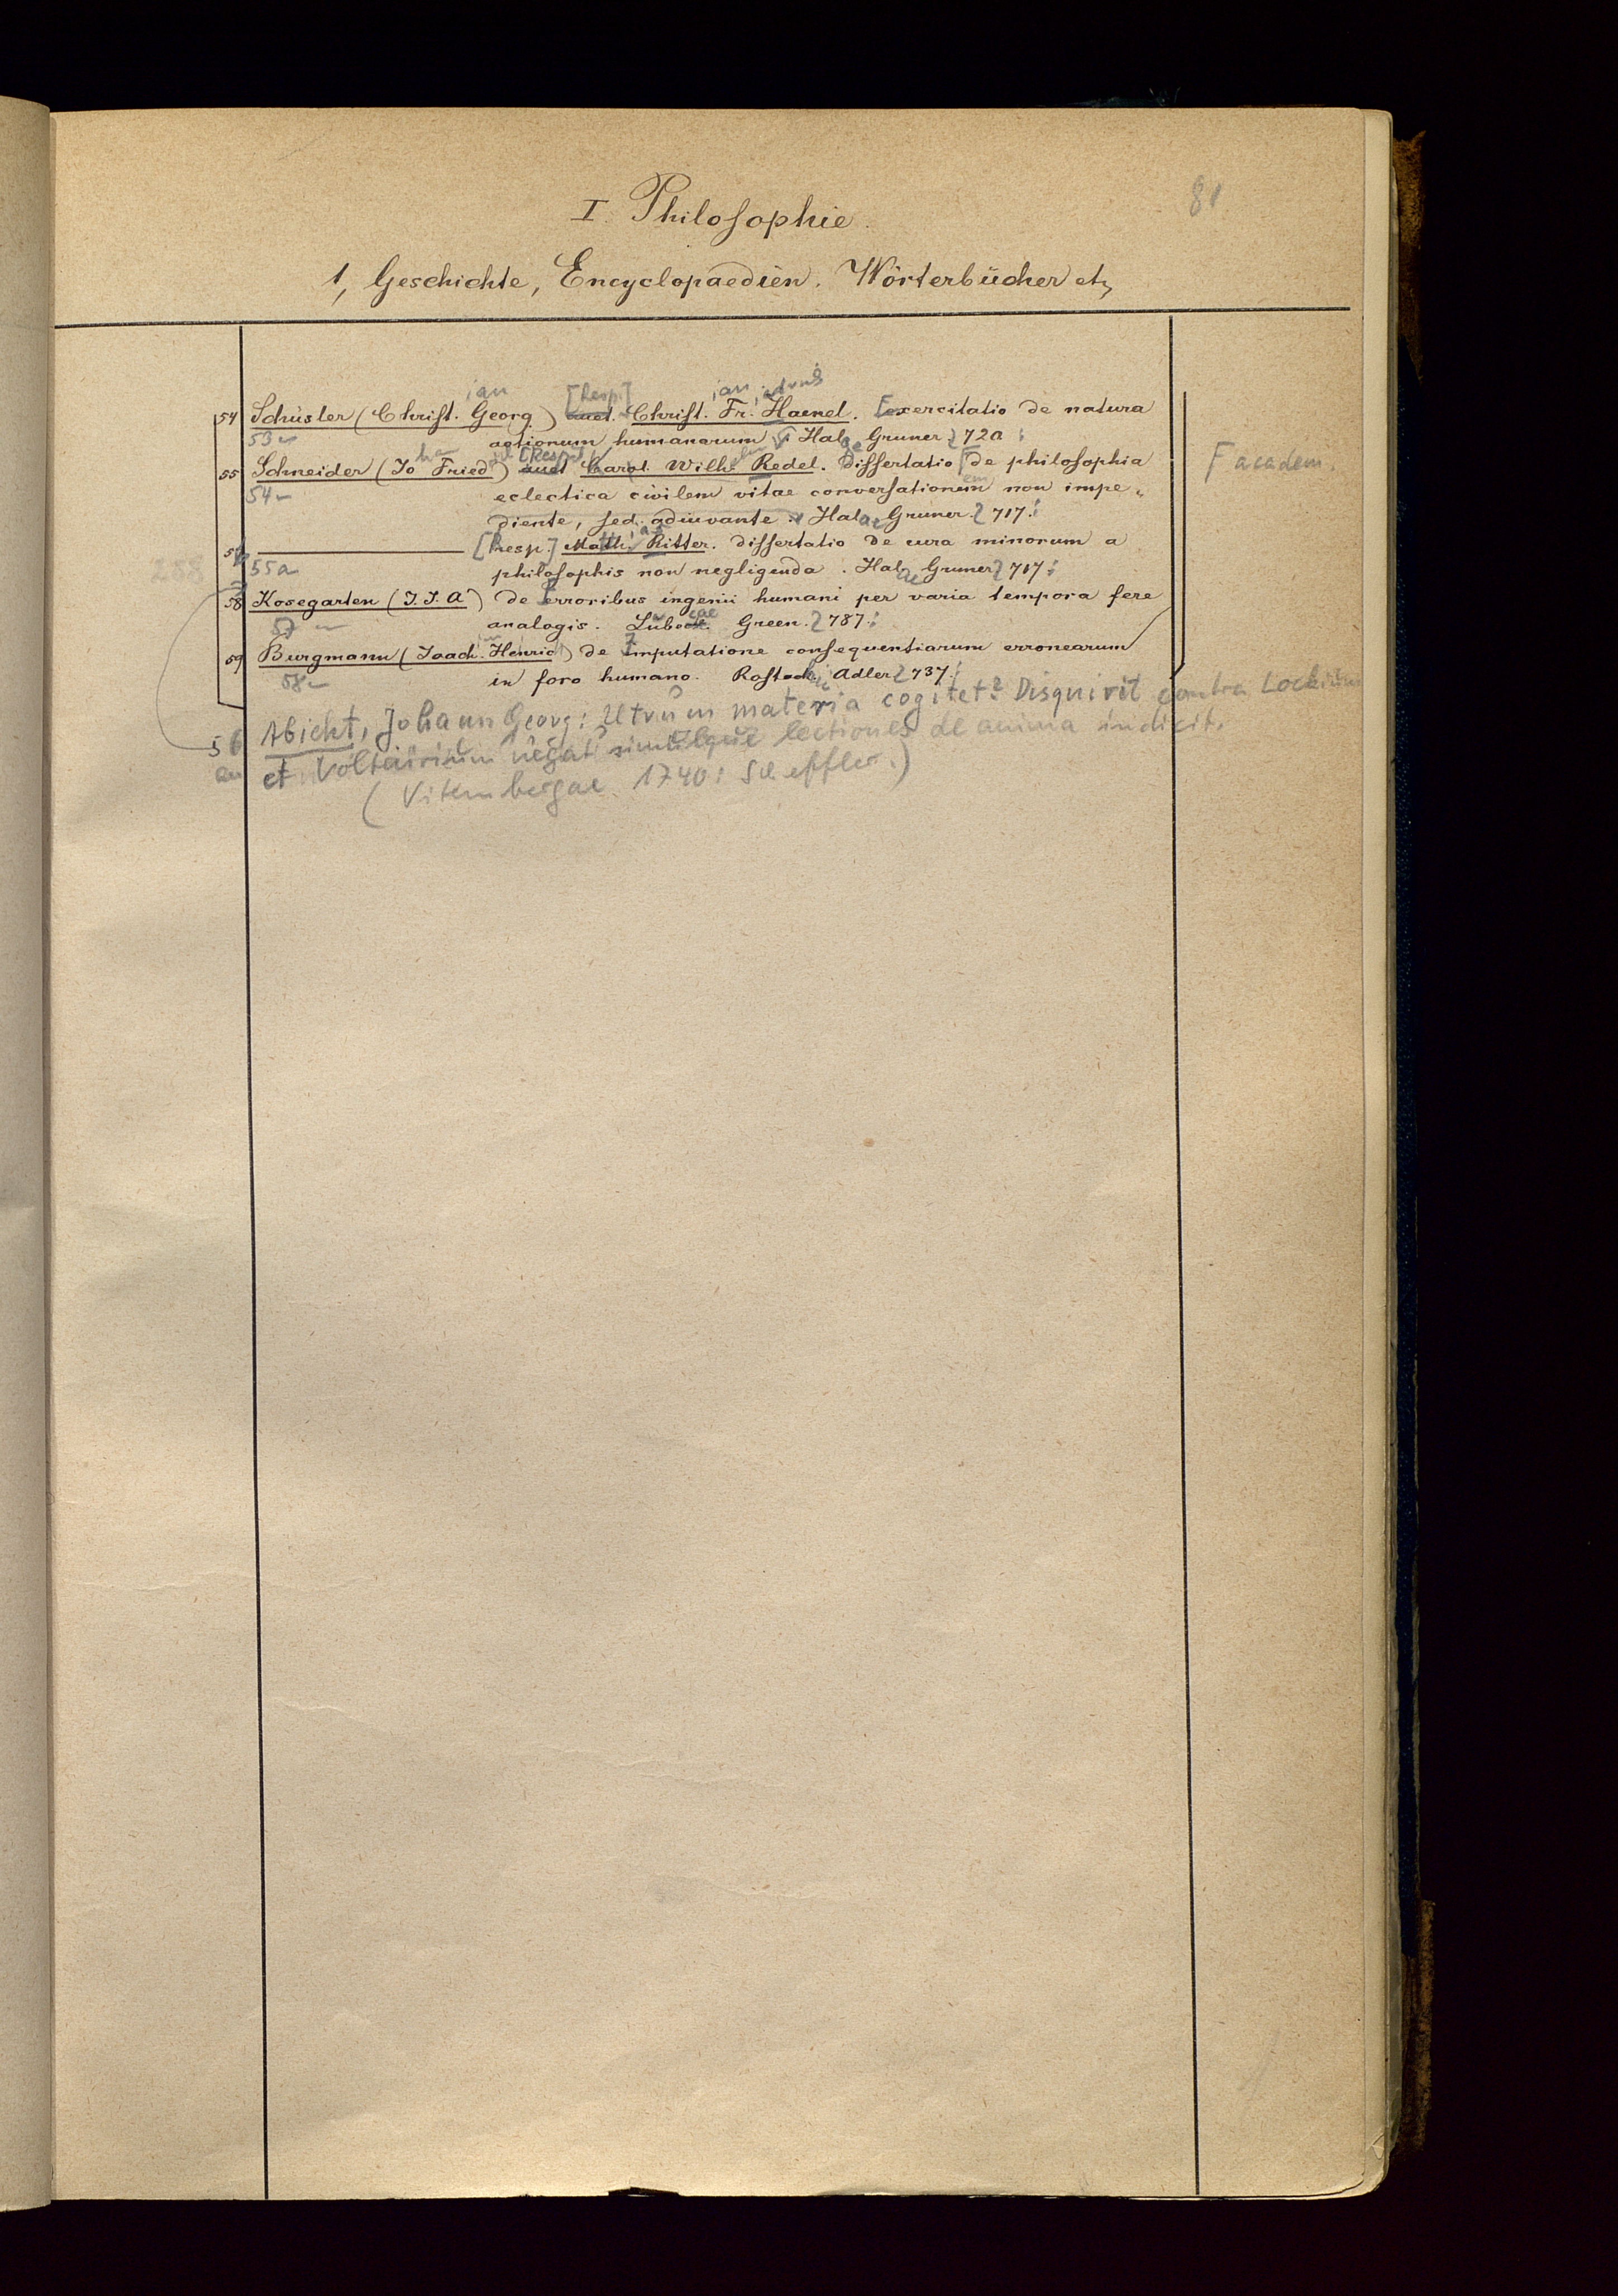 81
I. Philosophie.
1, Geschichte, Encyclopaedien. Wörterbücher etc,
ian [Resp.] ian
54 Schüsler (Christ. Georg) auct. Christ. Fr. Haenel. Exercitatio de natura
53 actionum humanarum Halae Gruner 720
55 Schneider (Jo Fried) [Resp.] auct Carol. Wilh. Redel. Dissertatio de philosophia
F academ.
54 eclectica civilem vitae conversationem non impe„
diente, sed adiuvante. Halae Gruner 717.
[Resp.] Matth. Ritter. dissertatio de cura minorum a
288 55a philosophis non negligenda. Halae Gruner 717
58 Kosegarten (J. J. A) de erroribus ingenii humani per varia tempora fere
57 analogis. Lubecae Green. 787.
59 Burgmann (Joach. Henric) de imputatione consequentiarum erronearum
58 in foro humano. Rostochii Adler 737.
Abicht, Johann Georg: Utrum materia cogitet? Disquirit contra Lockium
56 et Voltairium negat simulque lectiones de anima indicit.
(Vitembergae 1740: Scheffler.)